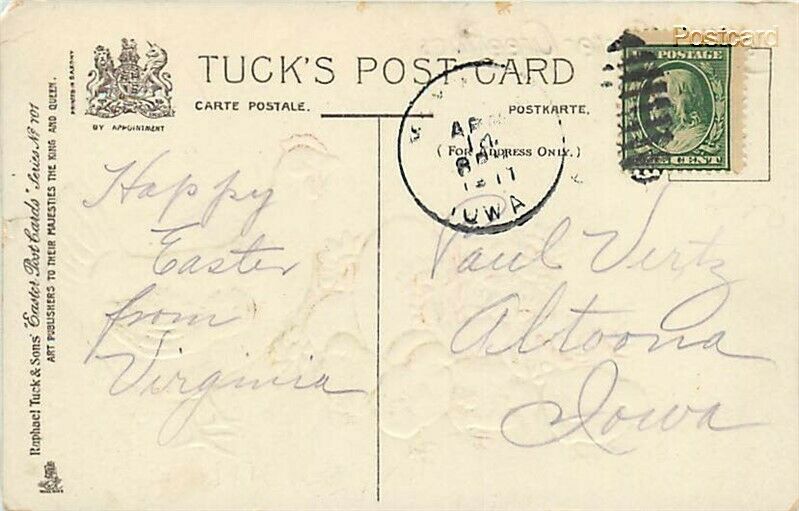 Postcard
TUCK'S POST CARD
CARTE POSTALE.
POSTKARTE.
(FOR ADDRESS ONLY.)
BY APPOINTMENT
PRINTED IN SAXONY
Raphael Tuck & Sons' "Easter Post Cards" Series No 701
ART PUBLISHERS TO THEIR MAJESTIES THE KING AND QUEEN.
U.S. POSTAGE
CENT
14
1911
IOWA
Happy
Easter
from
Virginia
Paul Vertz
Altoona
Iowa